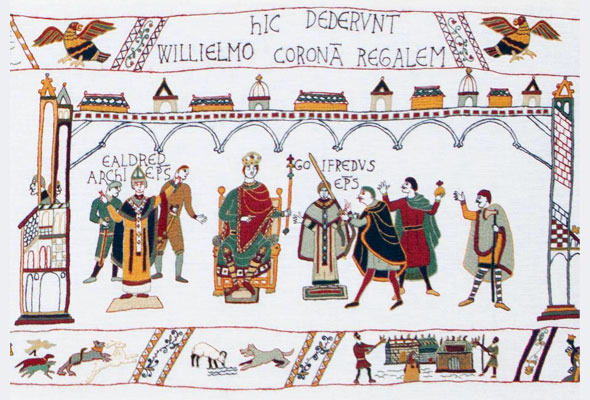 hIC DEDERVNT
WILLIELMO CORONĀ REGALEM
EALDRED
ARChI EPS̄
GOIFREDVS
EPS̄